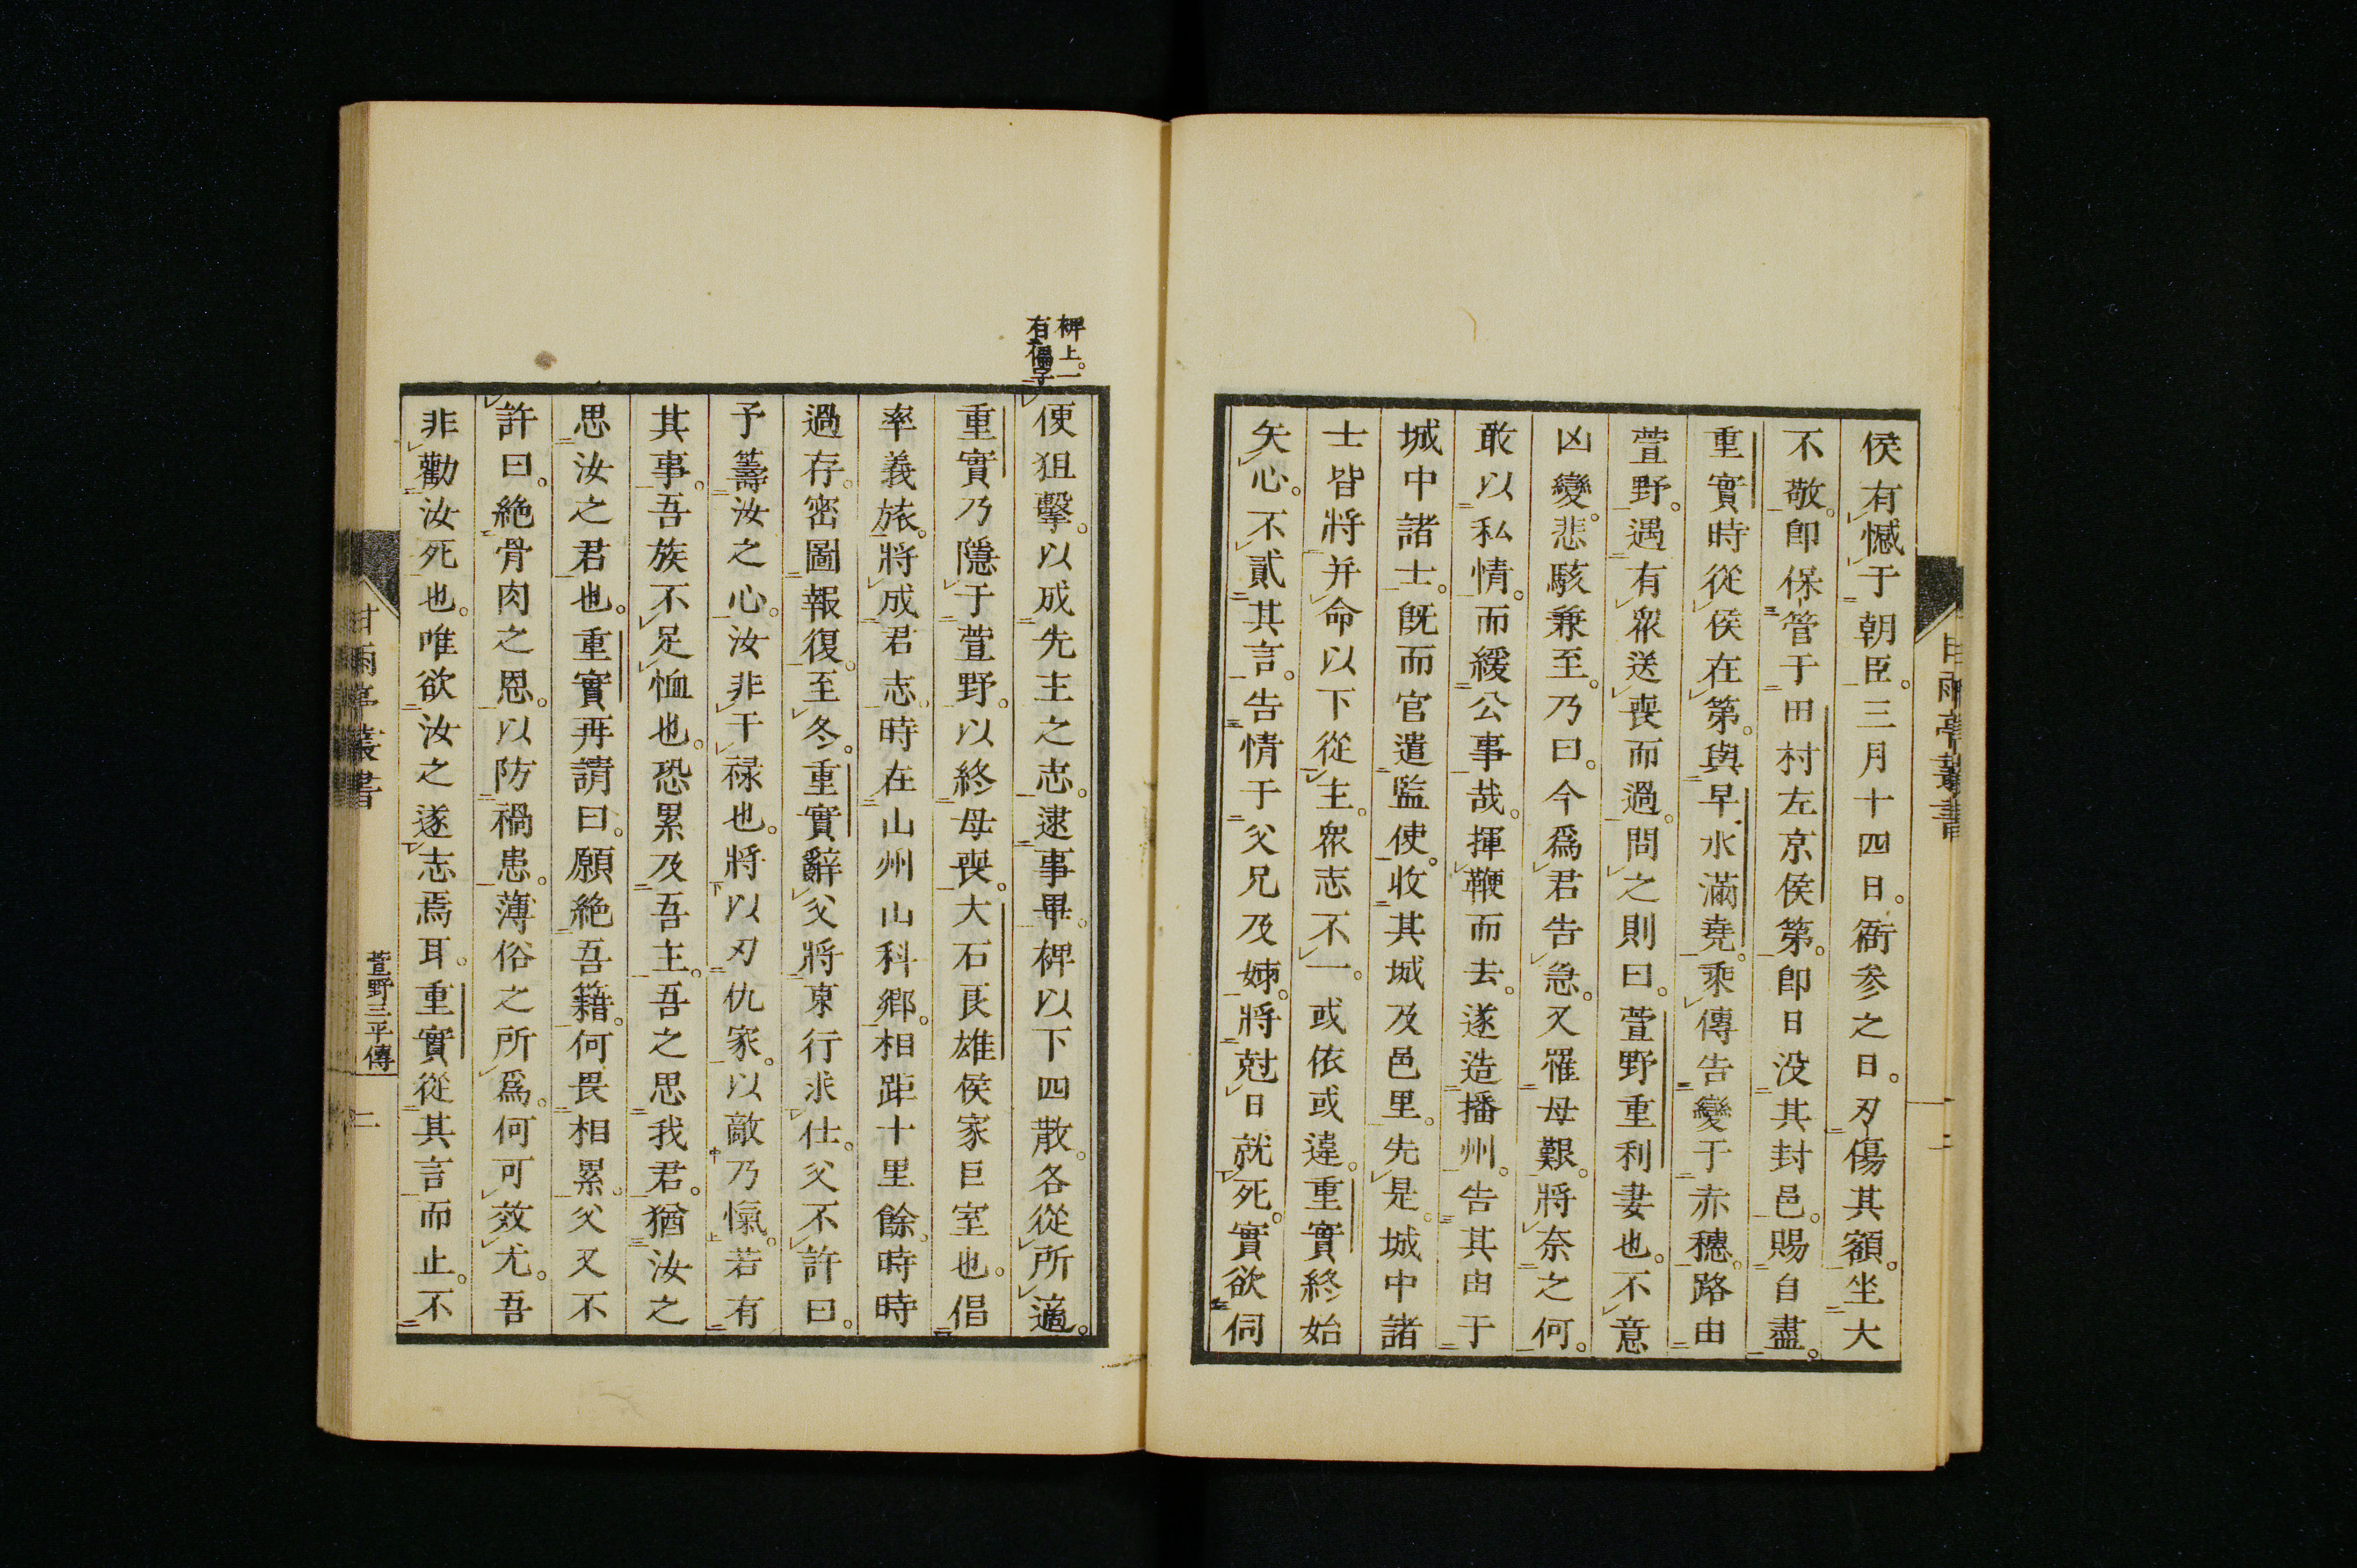 侯有憾于朝臣。三月十四日。衙参之日。刃傷其額。坐大
不敬。即保管于田村左京侯第。即日没其封邑。賜自盡。
重實時從侯在第。與早水滿堯。乘傳告變于赤穗。路由
萱野。遇有衆送喪而過。問之則曰。萱野重利妻也。不意
凶變。悲駭兼至。乃曰。今爲君告急。又罹母艱。將奈之何。
敢以私情。而緩公事哉。揮鞭而去。遂造播州。告其由于
城中諸士。旣而官遣監使。收其城及邑里。先是。城中諸
士皆將并命以下從主。衆志不一。或依或違。重實終始
矢心。不貳其言。告情于父兄及姊。將尅日就死。實欲伺
甘雨亭叢書
裨上。一
有偏字
便狙擊。以成先主之志。逮事畢。裨以下四散。各從所適。
重實乃隱于萱野。以終母喪。大石良雄侯家巨室也。倡
率義旅。將成君志。時在山州山科鄉。相距十里餘。時時
過存。密圖報復。至冬。重實辭父將東行求仕。父不許曰。
予籌汝之心。汝非干禄也。將以刃仇家。以敵乃愾。若有
其事。吾族不足恤也。恐累及吾主。吾之思我君。猶汝之
思汝之君也。重實再請曰。願絶吾籍。何畏相累。父又不
許曰。絶骨肉之恩。以防禍患。薄俗之所爲。何可效尤。吾
非勸汝死也。唯欲汝之遂志焉耳。重實從其言而止。不
甘雨亭叢書
萱野三平傳
二